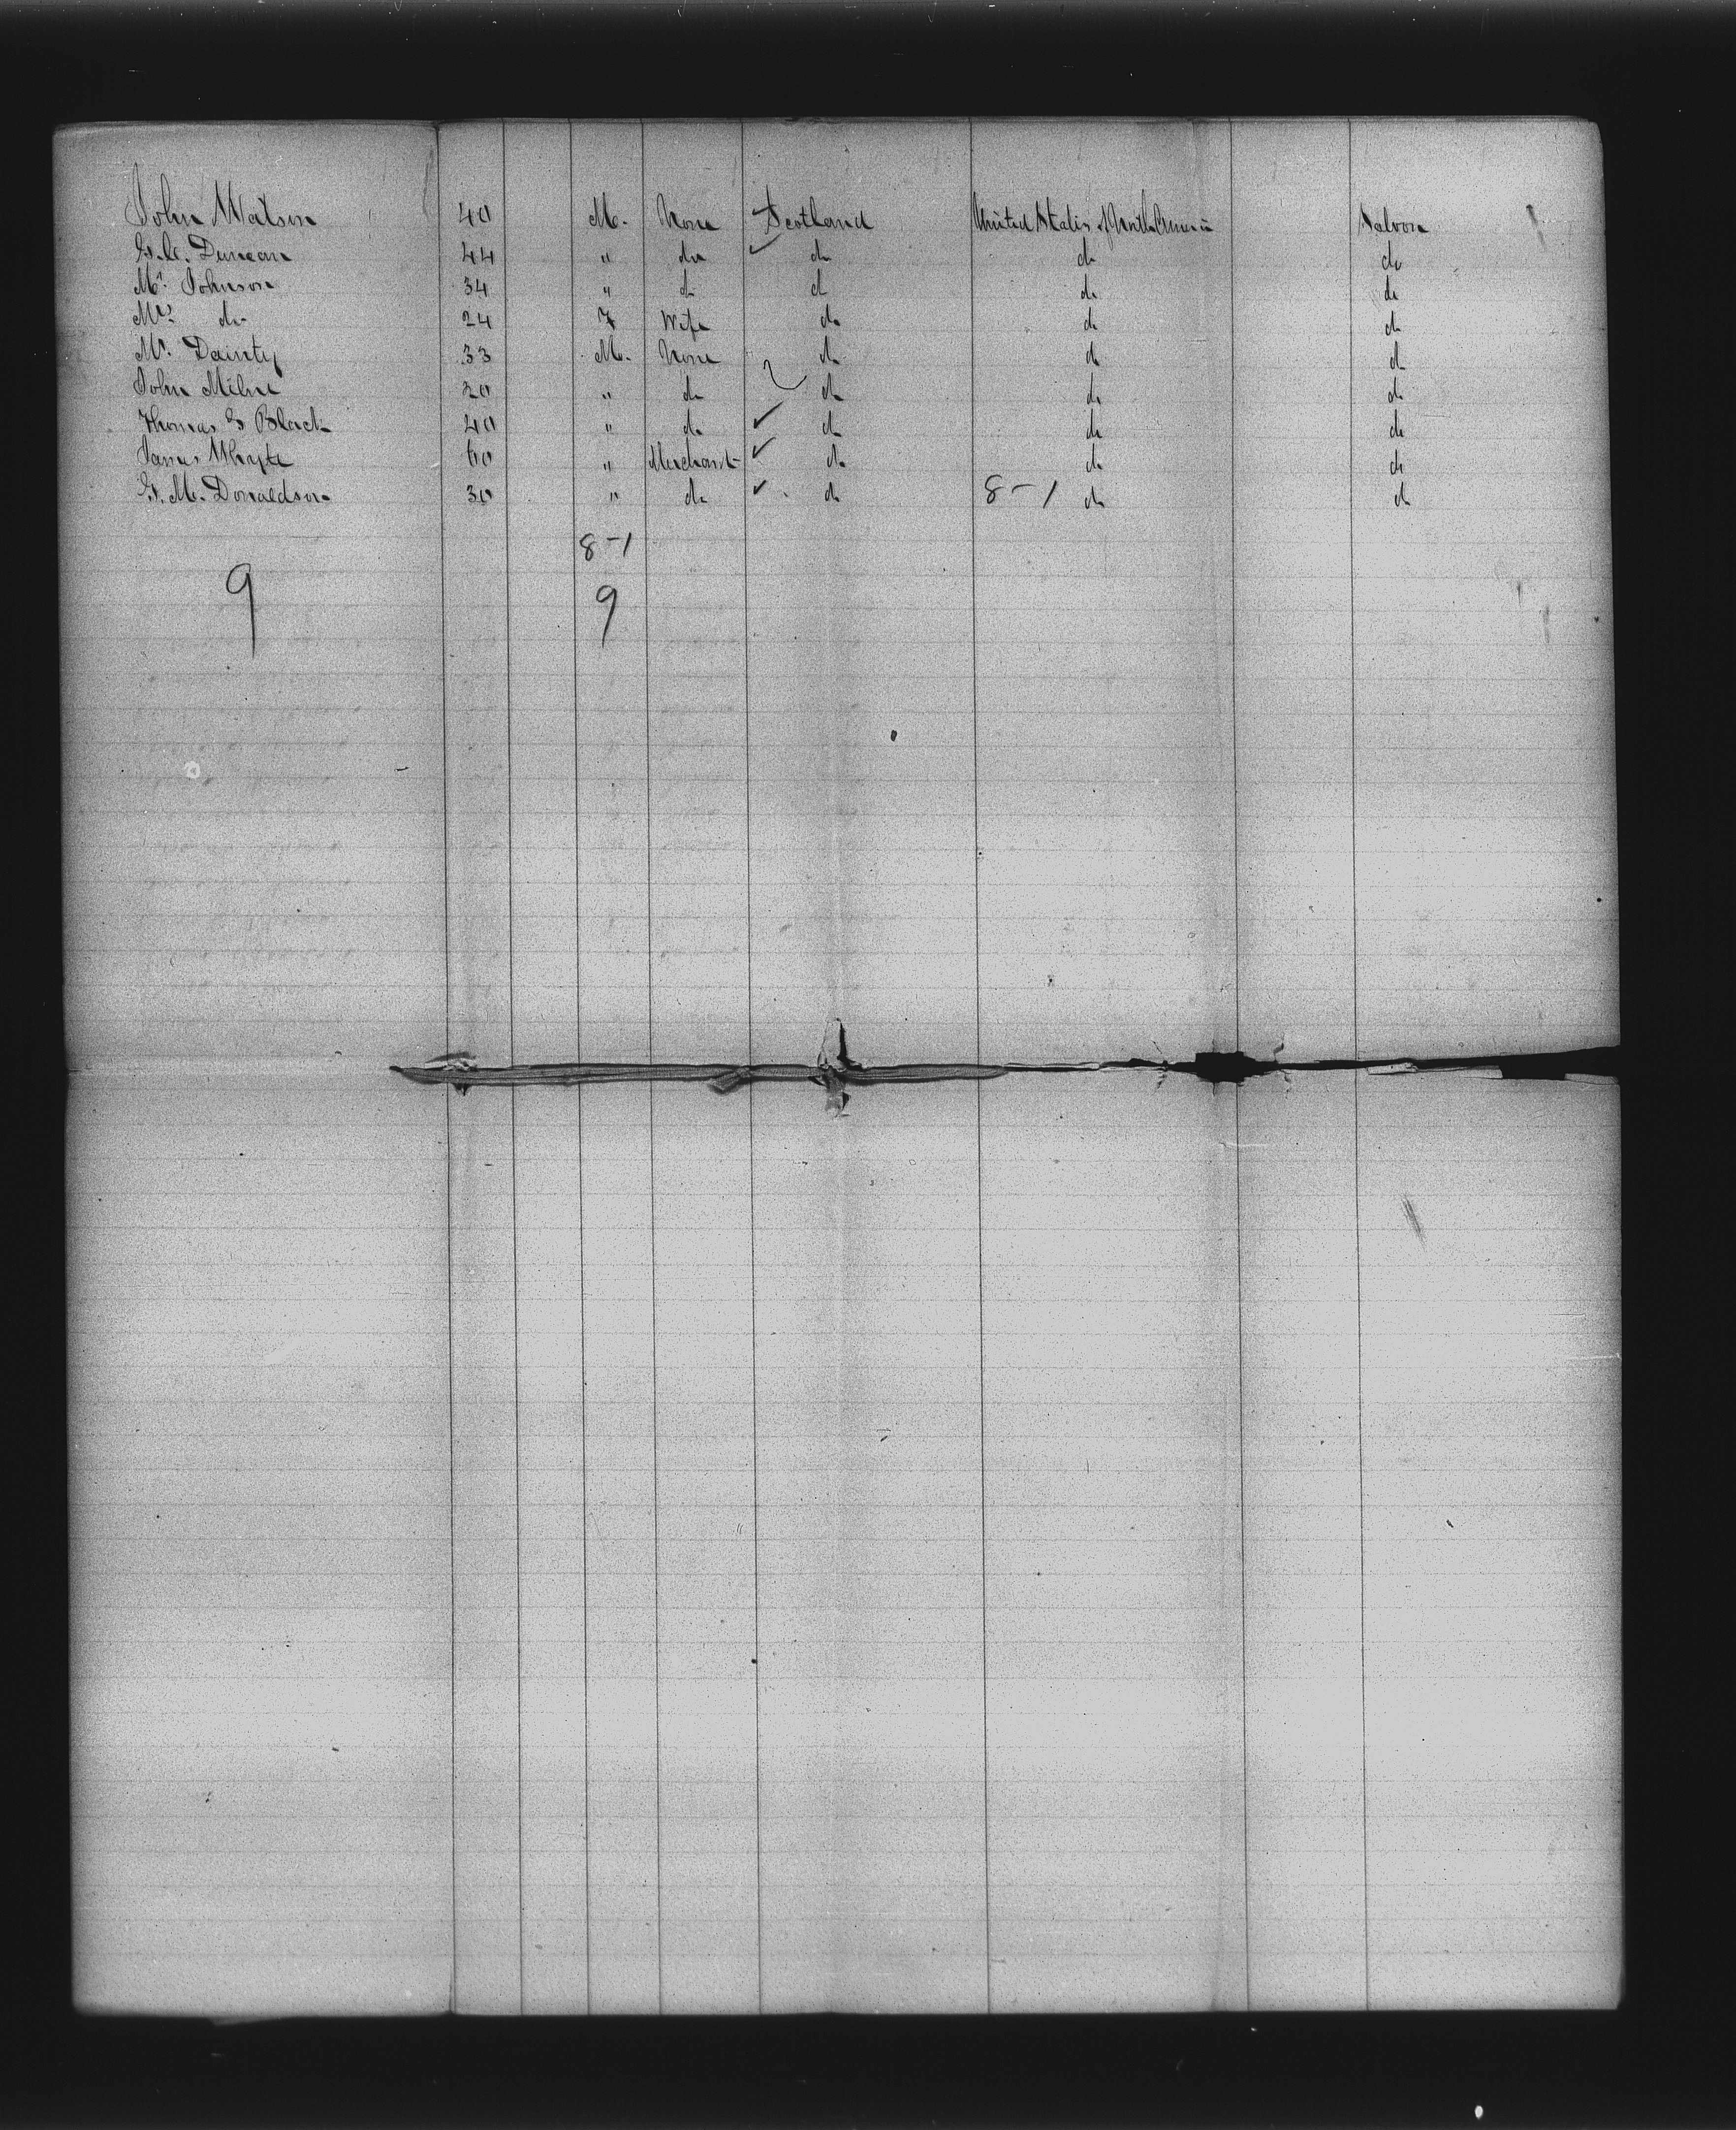 John Watson 40 M. None Scotland United States of North America Saloon
G. C. Duncan 44 " do do do do
Mr. Johnson 34 " do do do do
Mrs. do 24 F Wife do do do
Mr. Dainty 33 M. None do do do
John Milne 20 " do do do do
Thomas G Black 40 " do do do do
James Whyte 60 " Merchant do do do
G. M. Donaldson 30 " do do 8-1 do do
8-1
9 9